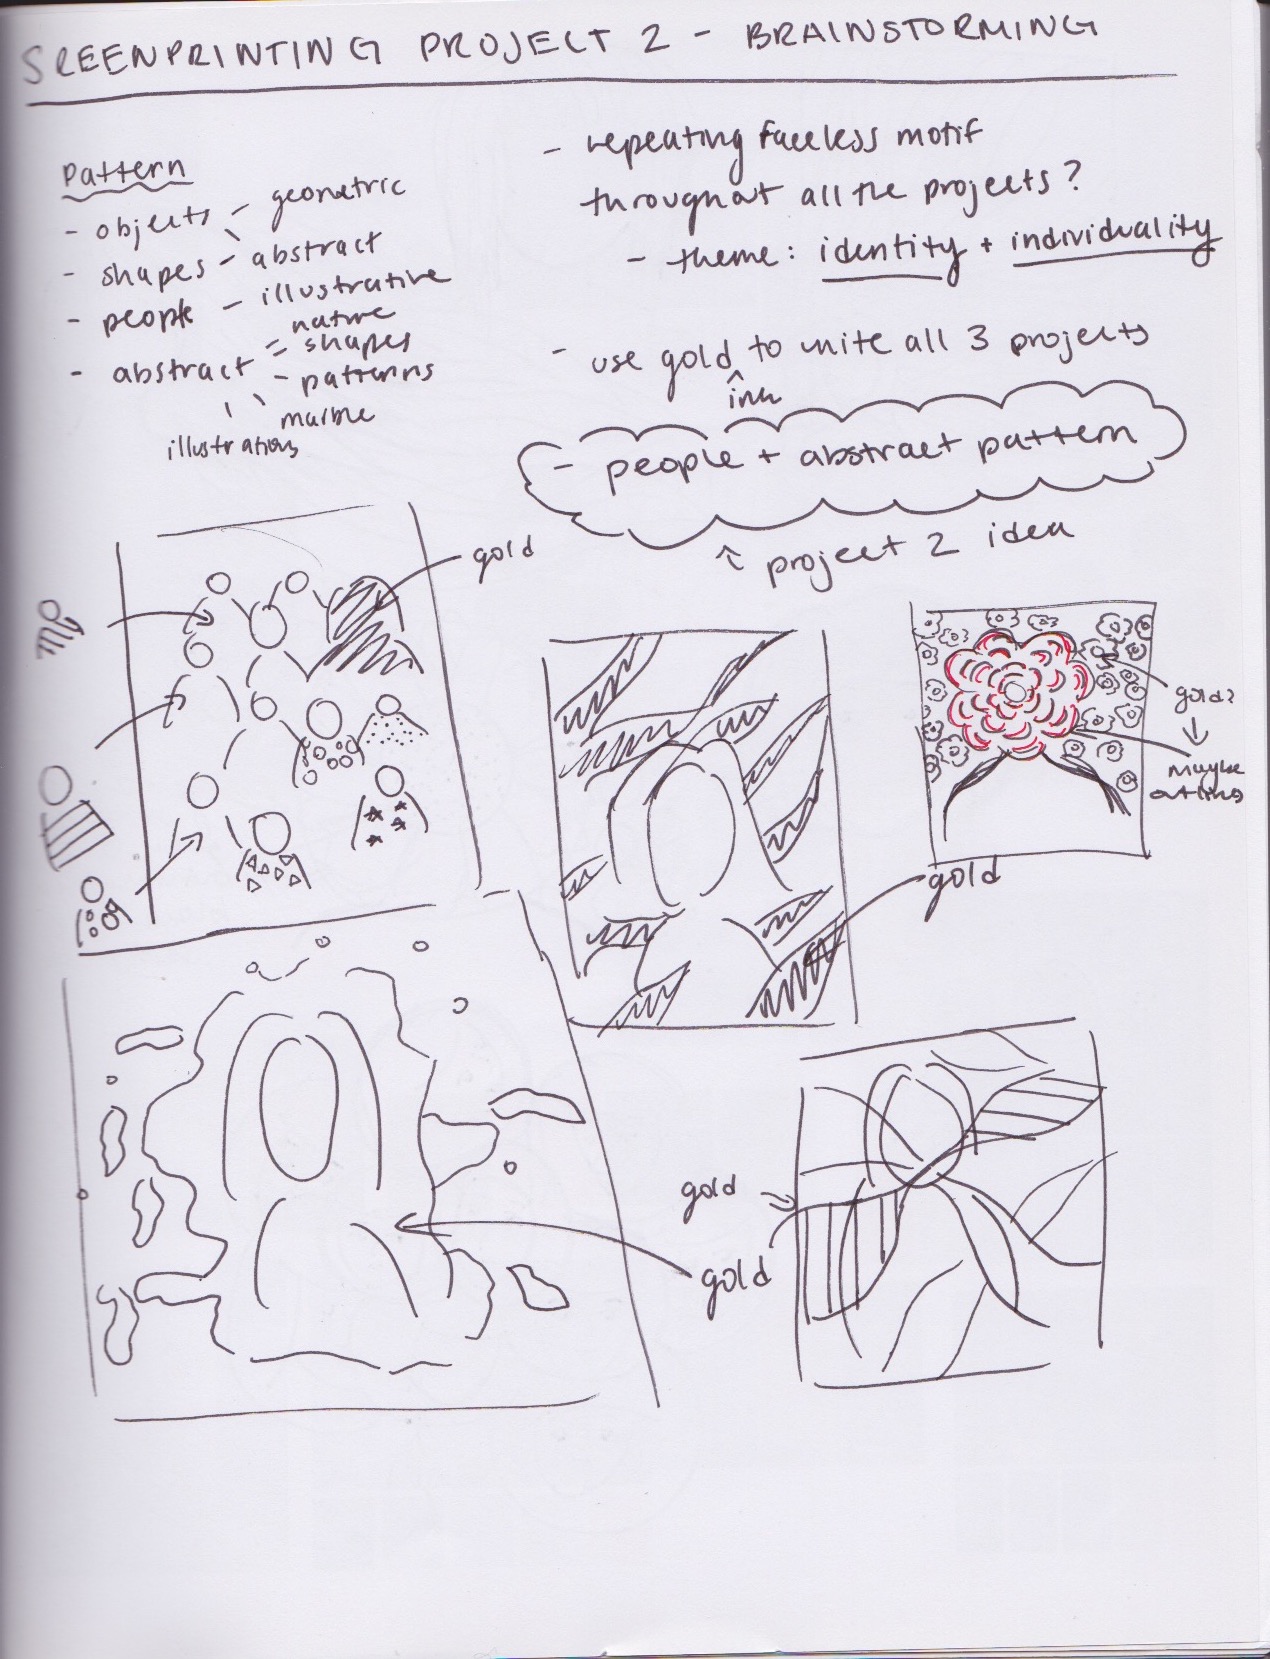 SREENPRINTING PROJECT 2 - BRAINSTORMING
Pattern
- objects - geometric
- shapes - abstract
- people - illustrative
- abstract = nature
- shapes
- patterns
marble
illustrations
- repeating faceless motif
throughout all the projects?
- theme: identity + individuality
- use gold ^ to unite all 3 projects
ink
- people + abstract pattern
↑ project 2 idea
gold
gold?
↓
maybe
outlines
gold
gold
gold